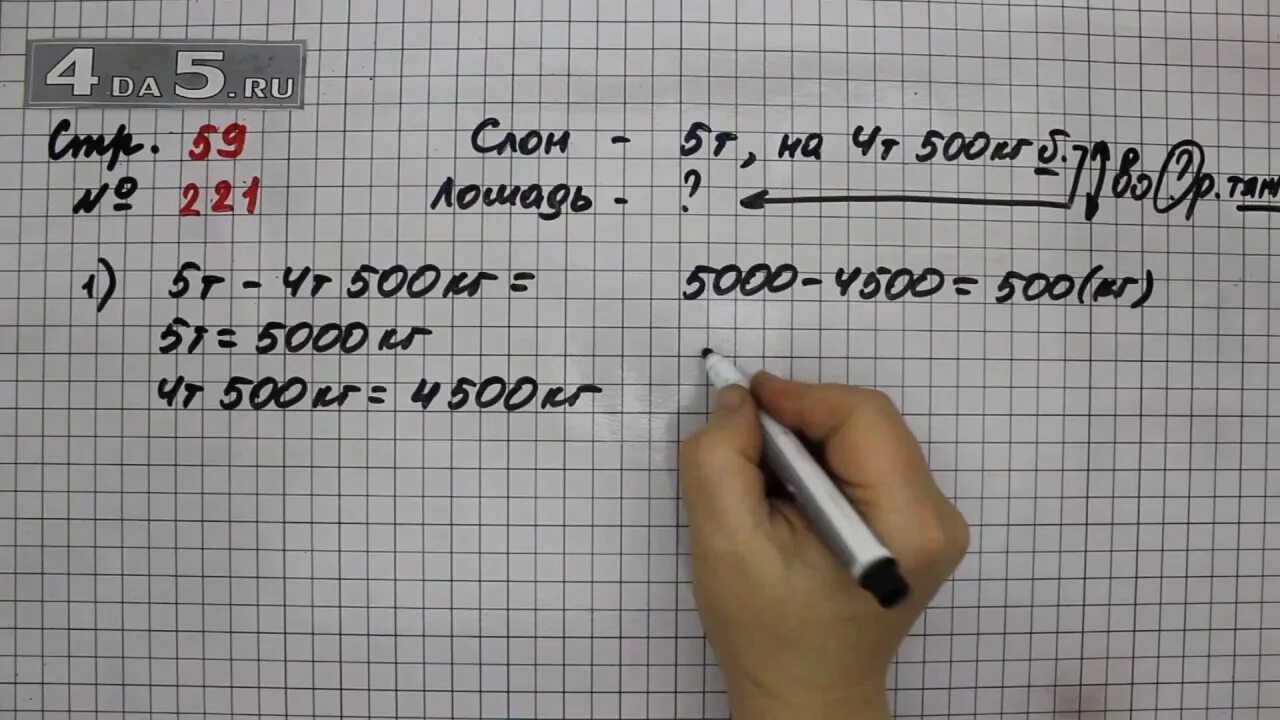 4DA5.RU
Стр. 59
№ 221
Слон - 5т, на 4т 500кг б.
Лошадь - ?
во ? р. тяж
1) 5т - 4т 500кг =
5т = 5000кг
4т 500кг = 4500кг
5000 - 4500 = 500(кг)